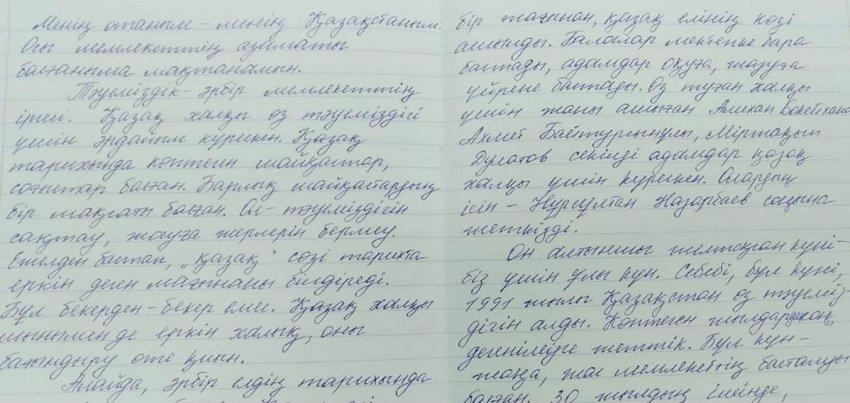 Менің отаным - менің Қазақстаным.
Осы мемлекеттің азаматы
болғаныма мақтанамын.
Тәуелсіздік - әрбір мемлекеттің
іргесі. Қазақ халқы өз тәуелсіздігі
үшін әрдайым күрескен. Қазақ
тарихында көптеген шайқастар,
соғыстар болған. Барлық шайқастардың
бір мақсаты болған. Ол - тәуелсіздігін
сақтау, жауға жерлерін бермеу.
Ежелден бастап, „қазақ" сөзі тарихта
еркін деген мағынаны білдіреді.
Бұл бекерден-бекер емес. Қазақ халқы
шынымен де еркін халық, оны
бағындыру өте қиын.
Алайда, әрбір елдің тарихында
бір жағынан, қазақ елінің көзі
ашылды. Балалар мектепке бара
бастады, адамдар оқуға, жазуға
үйрене бастады. Өз туған халқы
үшін жаны ашыған Әлихан Бөкейхано
Ахмет Байтұрсынұлы, Міржақып
Дулатов секілді адамдар қазақ
халқы үшін күрескен. Олардың
ісін - Нұрсұлтан Назарбаев соңына
жеткізді.
Он алтыншы желтоқсан күні -
біз үшін ұлы күн. Себебі, бұл күні,
1991 жылы Қазақстан өз тәуелсіз-
дігін алды. Көптеген жылдар
дегенімізге жеттік. Бұл күн -
жаңа, жас мемлекеттің басталуы
болған. 30 жылдың ішінде,